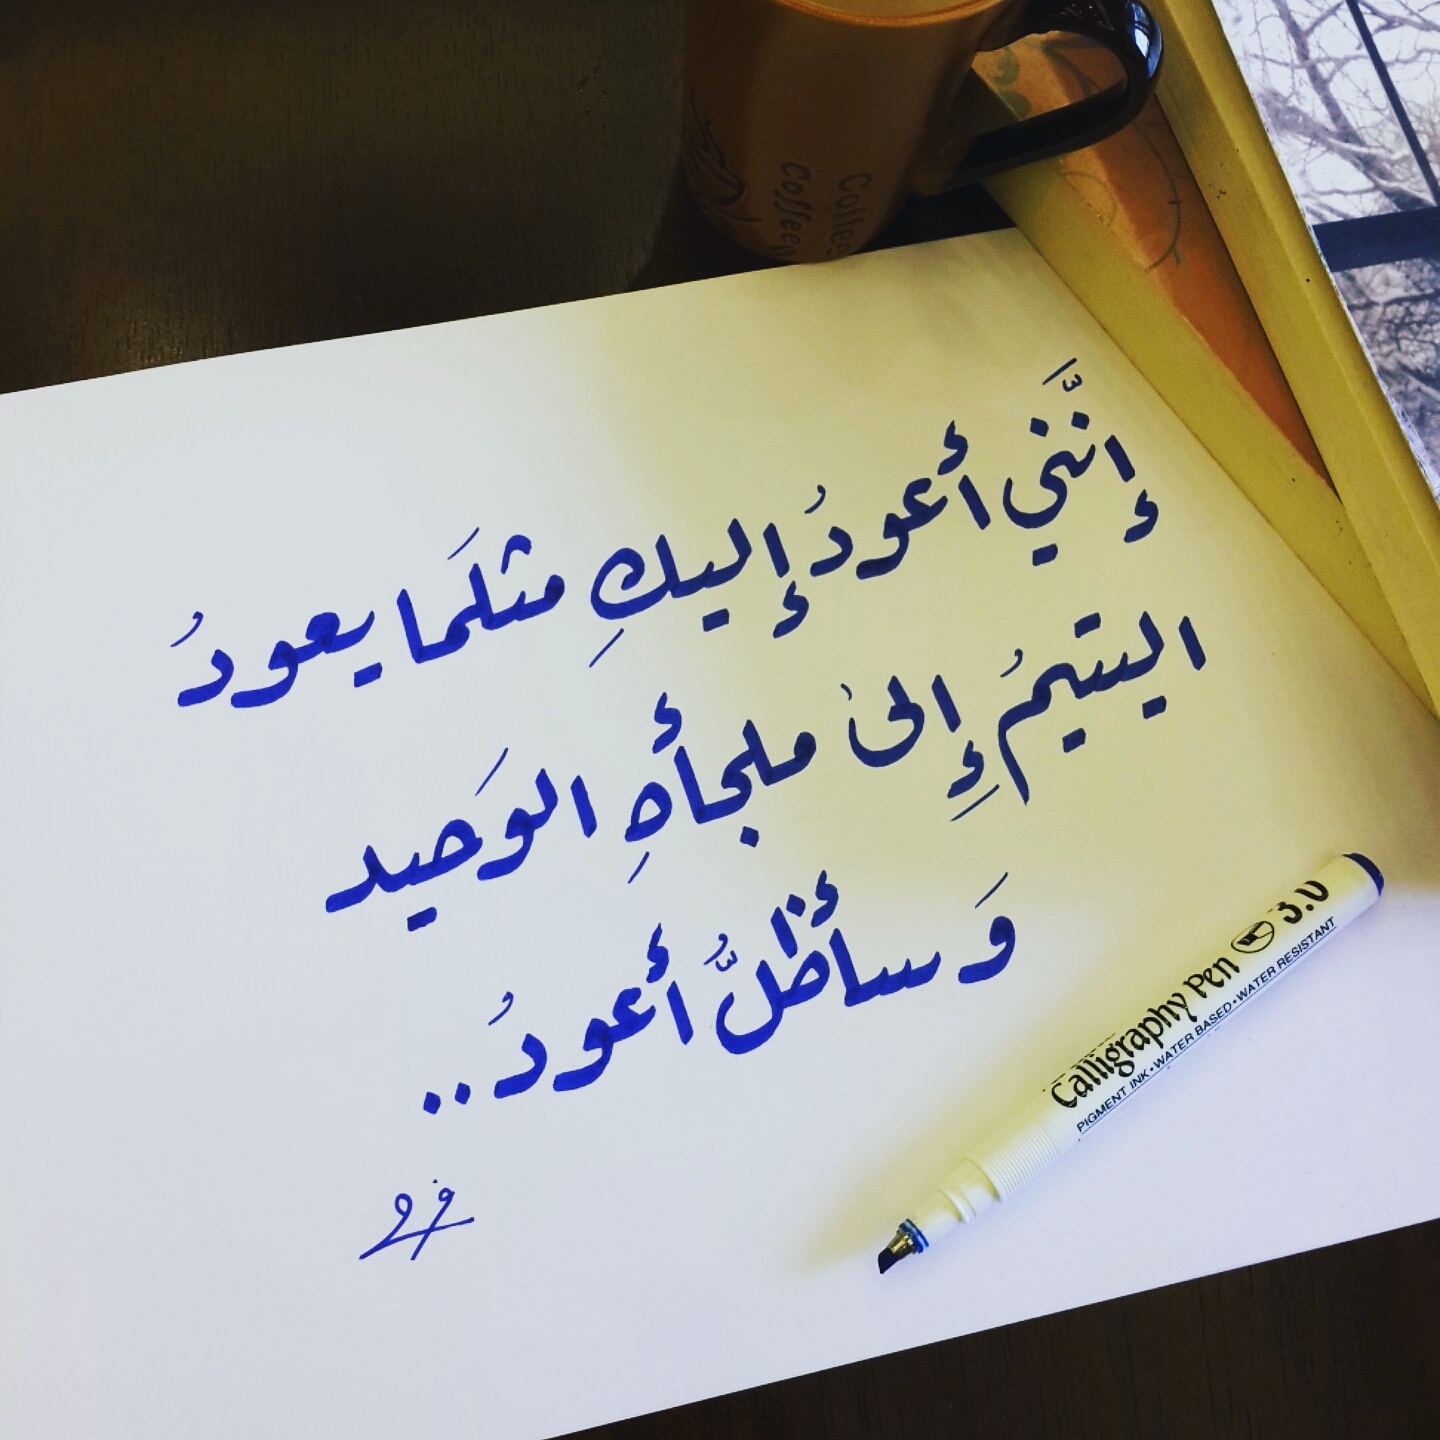 Coffee
Coffee
إنَّني أعودُ إليكِ مثلَما يعودُ
اليتيمُ إِلى ملجأهِ الوَحيد
وَسأظلُّ أعودُ..
Calligraphy Pen 3.0
PIGMENT INK•WATER BASED•WATER RESISTANT